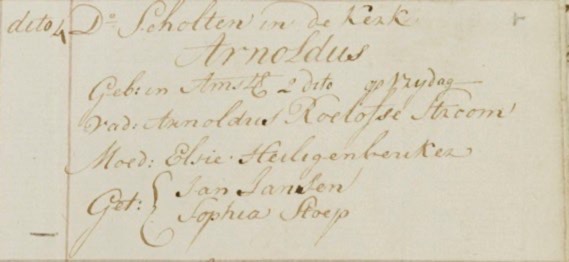 dito 4 Do Scholten in de Kerk
Arnoldus
Geb: in Amst 2 dito op Vrydag
Vad: Arnoldus Roelofse Stroom
Moed: Elsie Heiligenbeuker
Get: { Jan Jansen
Sophia Stoep